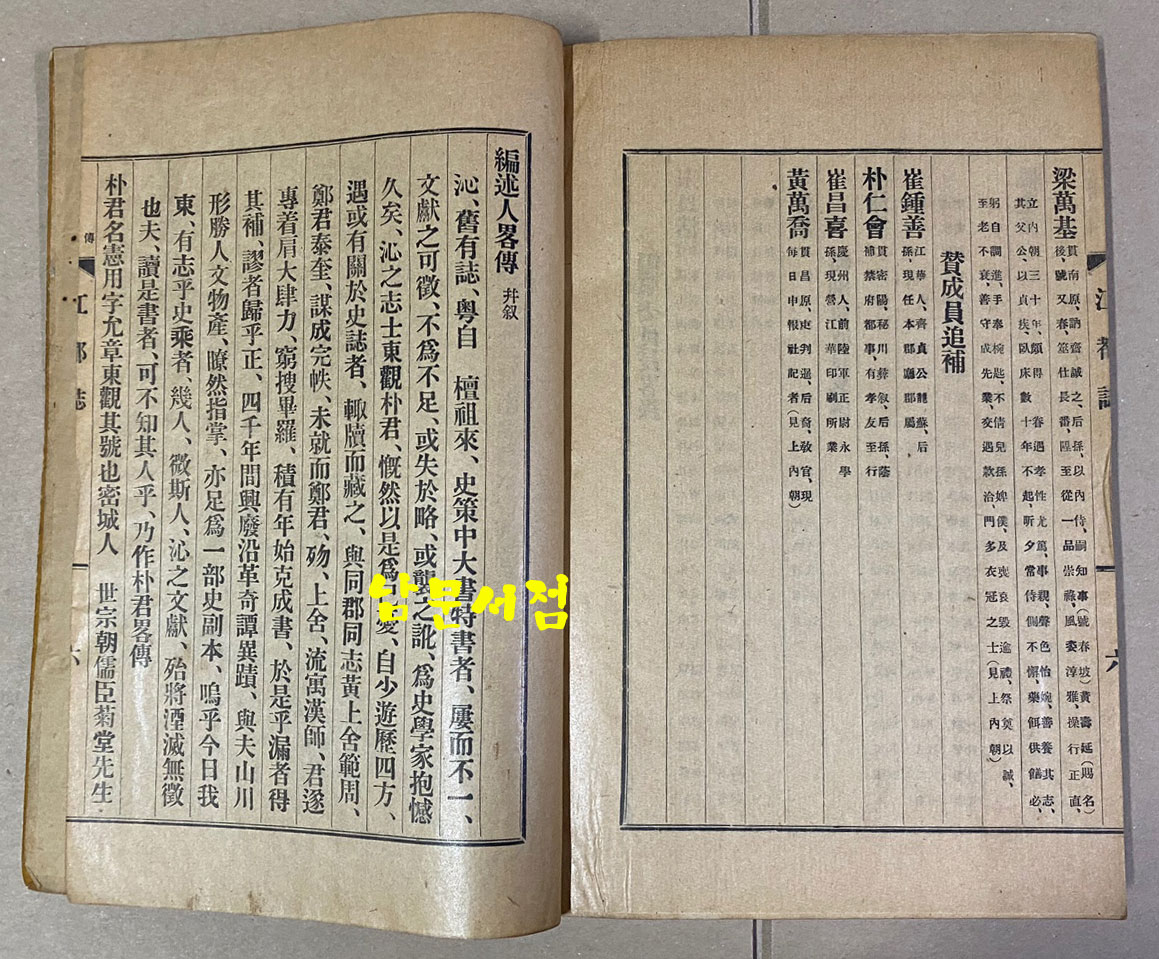 梁萬基
貫南原、訥齋誠之后孫、以內侍嗣知事(號春坡)黃壽延(賜名
後號又春、筮仕長番、陞至從一品崇祿、風姿淳雅、操行正直、
立內朝三十年、頗得眷遇、孝性尤篤、事親、聲色怡婉、善養其志、
其父公、以貞疾、臥床數十年不起、昕夕常侍側不懈、藥餌供饍必、
躬自調進、手奉椀匙、不倩兒孫婢僕、及喪、哀毀逾禮、祭奠以誠、
至老不衰、善守成先業、交遇款洽、門多衣冠之士(見上內朝)
贊成員追補
崔鍾善
江華人、齊貞公龍蘇、后
孫、現任本郡廳郡屬
朴仁會
貫密陽、秘川彝叙、后孫、蔭
補禁府都事、有孝友至行
崔昌喜
慶州人、前陸軍正尉永學
孫、現營江華印刷所業
黃萬喬
貫昌原、吏判暹、后裔、敎官、現
每日申報社記者(見上內朝)
江都誌
六
編述人畧傳 幷叙
沁、舊有誌、粤自 檀祖來、史策中大書特書者、屢而不一、
文獻之可徵、不爲不足、或失於略、或襲之訛、爲史學家抱憾
久矣、沁之志士東觀朴君、慨然以是爲己憂、自少遊歷四方、
遇或有關於史誌者、輙牘而藏之、與同郡同志黃上舍範周、
鄭君泰奎、謀成完帙、未就而鄭君、殇、上舍、流寓漢師、君遂
專着肩大肆力、窮搜畢羅、積有年始克成書、於是乎漏者得
其補、謬者歸乎正、四千年間興廢沿革奇譚異蹟、與夫山川
形勝人文物產、瞭然指掌、亦足爲一部史副本、嗚乎今日我
東、有志乎史乘者、幾人、微斯人、沁之文獻、殆將湮滅無徵
也夫、讀是書者、可不知其人乎、乃作朴君畧傳
朴君名憲用字允章東觀其號也密城人 世宗朝儒臣菊堂先生
傳
江都誌
六
남문서점